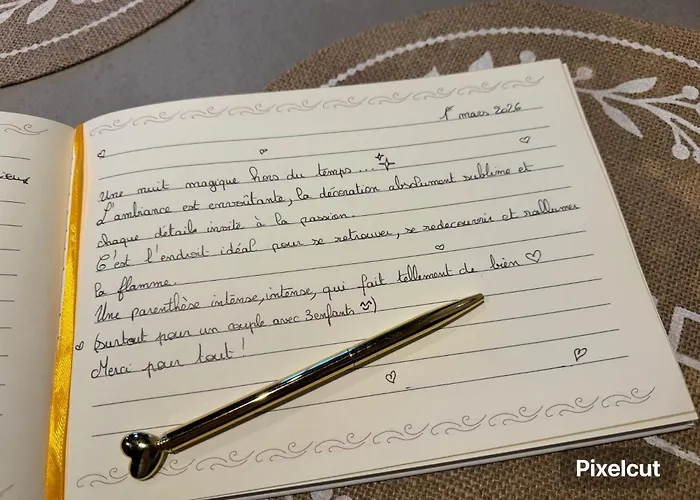 ieux
1er mars 2026
Une nuit magique hors du temps...
L'ambiance est envoûtante, la décoration absolument sublime et
chaque détails invite à la passion.
C'est l'endroit idéal pour se retrouver, se redecouvrir et rallumer
la flamme.
Une parenthèse intense, intense, qui fait tellement de bien ♡
(surtout pour un couple avec 3 enfants)
Merci pour tout !
Pixelcut